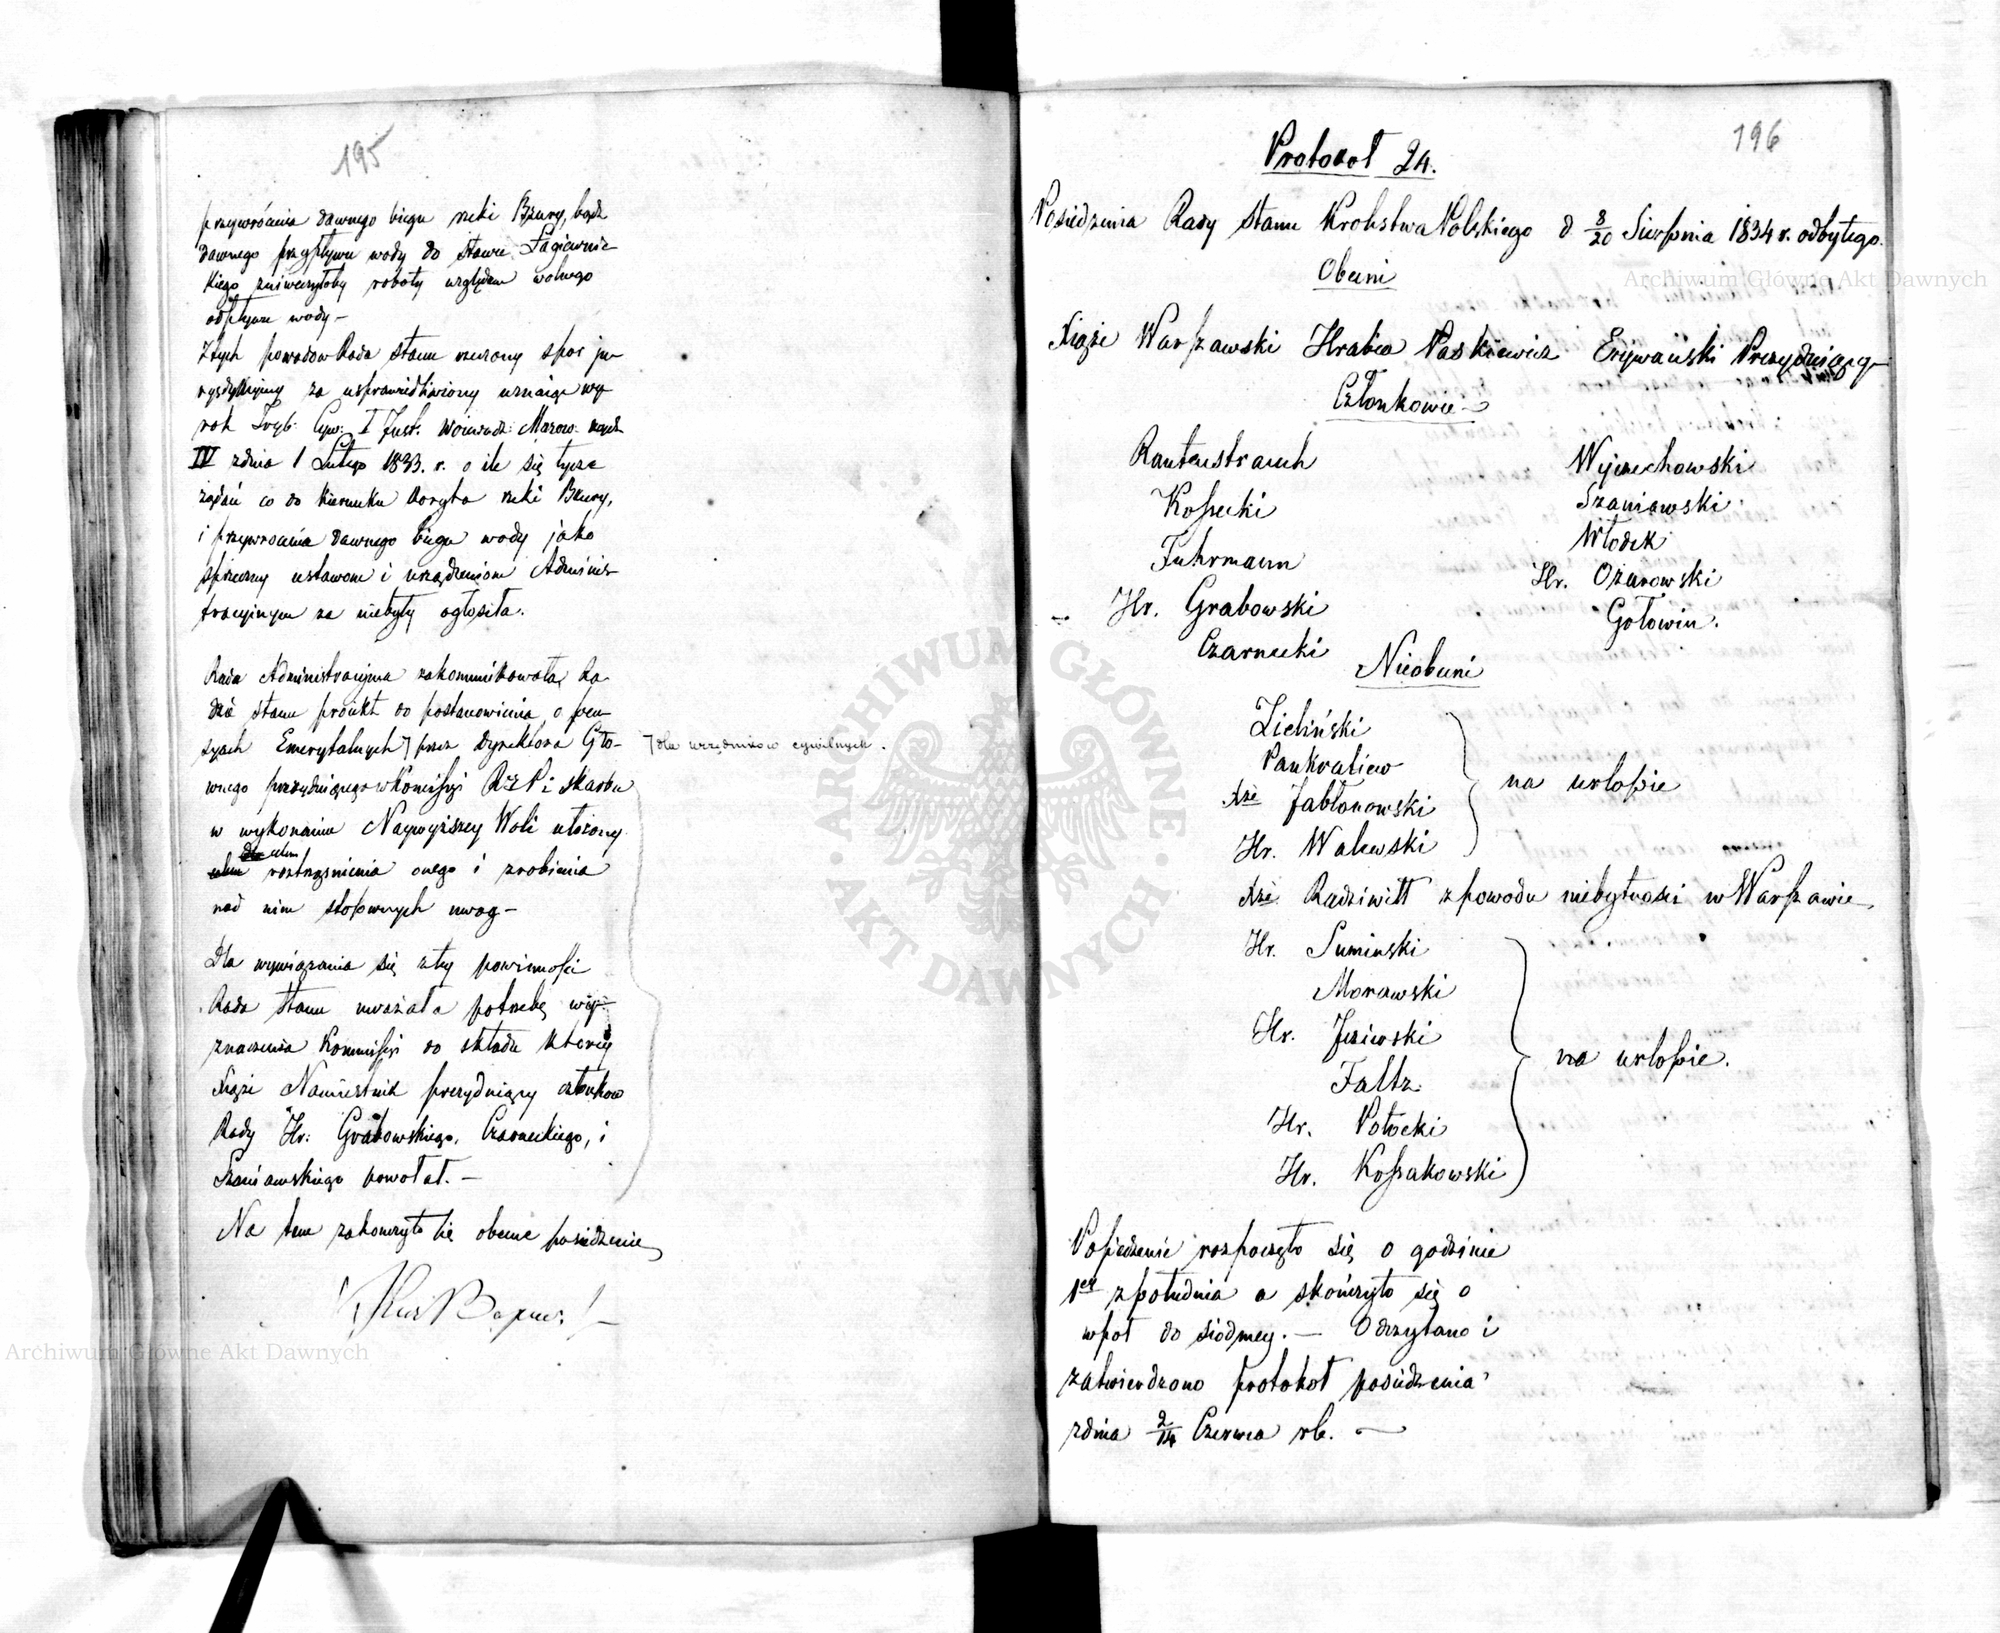 195
przywrócenia dawnego biegu rzeki Bzury, bądź
dawnego przypływu wody do stawu Łagiewnic-
kiego zniweczyłoby roboty względem wolnego
odpływu wody –
Z tych powodów Rada Stanu rzeczony spor ju-
rysdykcyjny za usprawiedliwiony uznaje wy-
rok Tryb. Cyw. I Inst. Wojewodz: Mazow.
IV z dnia 1 Lutego 1833. r. o ile się tycze
żądań co do kierunku koryta rzeki Bzury,
i przywrócenia dawnego biegu wody jako
sprzeczny ustawom i urządzeniom Adminis-
tracyjnym za niebyły ogłosiła.
Rada Administracyjna zakomunikowała Ra-
dzie Stanu projekt do postanowienia o pen-
syach Emerytalnych ⌉ przez Dyrektora Głó- ⌉ dla urzędników cywilnych.
wnego prezydującego w Kommissyi Rz P i Skarbu
w wykonaniu Naywyższey Woli ułożony
celem roztrząśnienia onego i zrobienia
nad nim stosownych uwag –
Dla wywiązania się z tey powinności
Rada Stanu uważała potrzebę wy-
znaczenia Kommissyi do składu którey
Xiąże Namiestnik prezydujący członków
Rady Hr: Grabowskiego, Czarneckiego, i
Szaniawskiego powołał. –
Na tem zakończyło się obecne posiedzenie
196
Protokoł 24.
Posiedzenia Rady Stanu Krolestwa Polskiego d. 8/20 Sierpnia 1834 r. odbytego.
Obecni
Xiąże Warszawski Hrabia Paskiewicz Erywański Prezydujący
Członkowie –
Rautenstrauch Wyczechowski
Kossecki Szaniawski
Fuhrmann Włodek
Hr. Grabowski Hr. Ożarowski
Czarnecki Gołowin.
Nieobecni
Zieliński
Pankratiew
Xże Jabłonowski na urlopie
Hr. Walewski
Xże Radziwiłł z powodu niebytności w Warszawie
Hr. Suminski
Morawski
Hr. Jezierski
Faltz na urlopie.
Hr. Potocki
Hr. Kossakowski
Posiedzenie rozpoczęło się o godzinie
1er z południa a skończyło się o
wpoł do siodmey. — Odczytano i
zatwierdzono protokoł posiedzenia
z dnia 2/14 Czerwca rb. —
Archiwum Główne Akt Dawnych
Archiwum Główne Akt Dawnych
ARCHIWUM GŁÓWNE AKT DAWNYCH